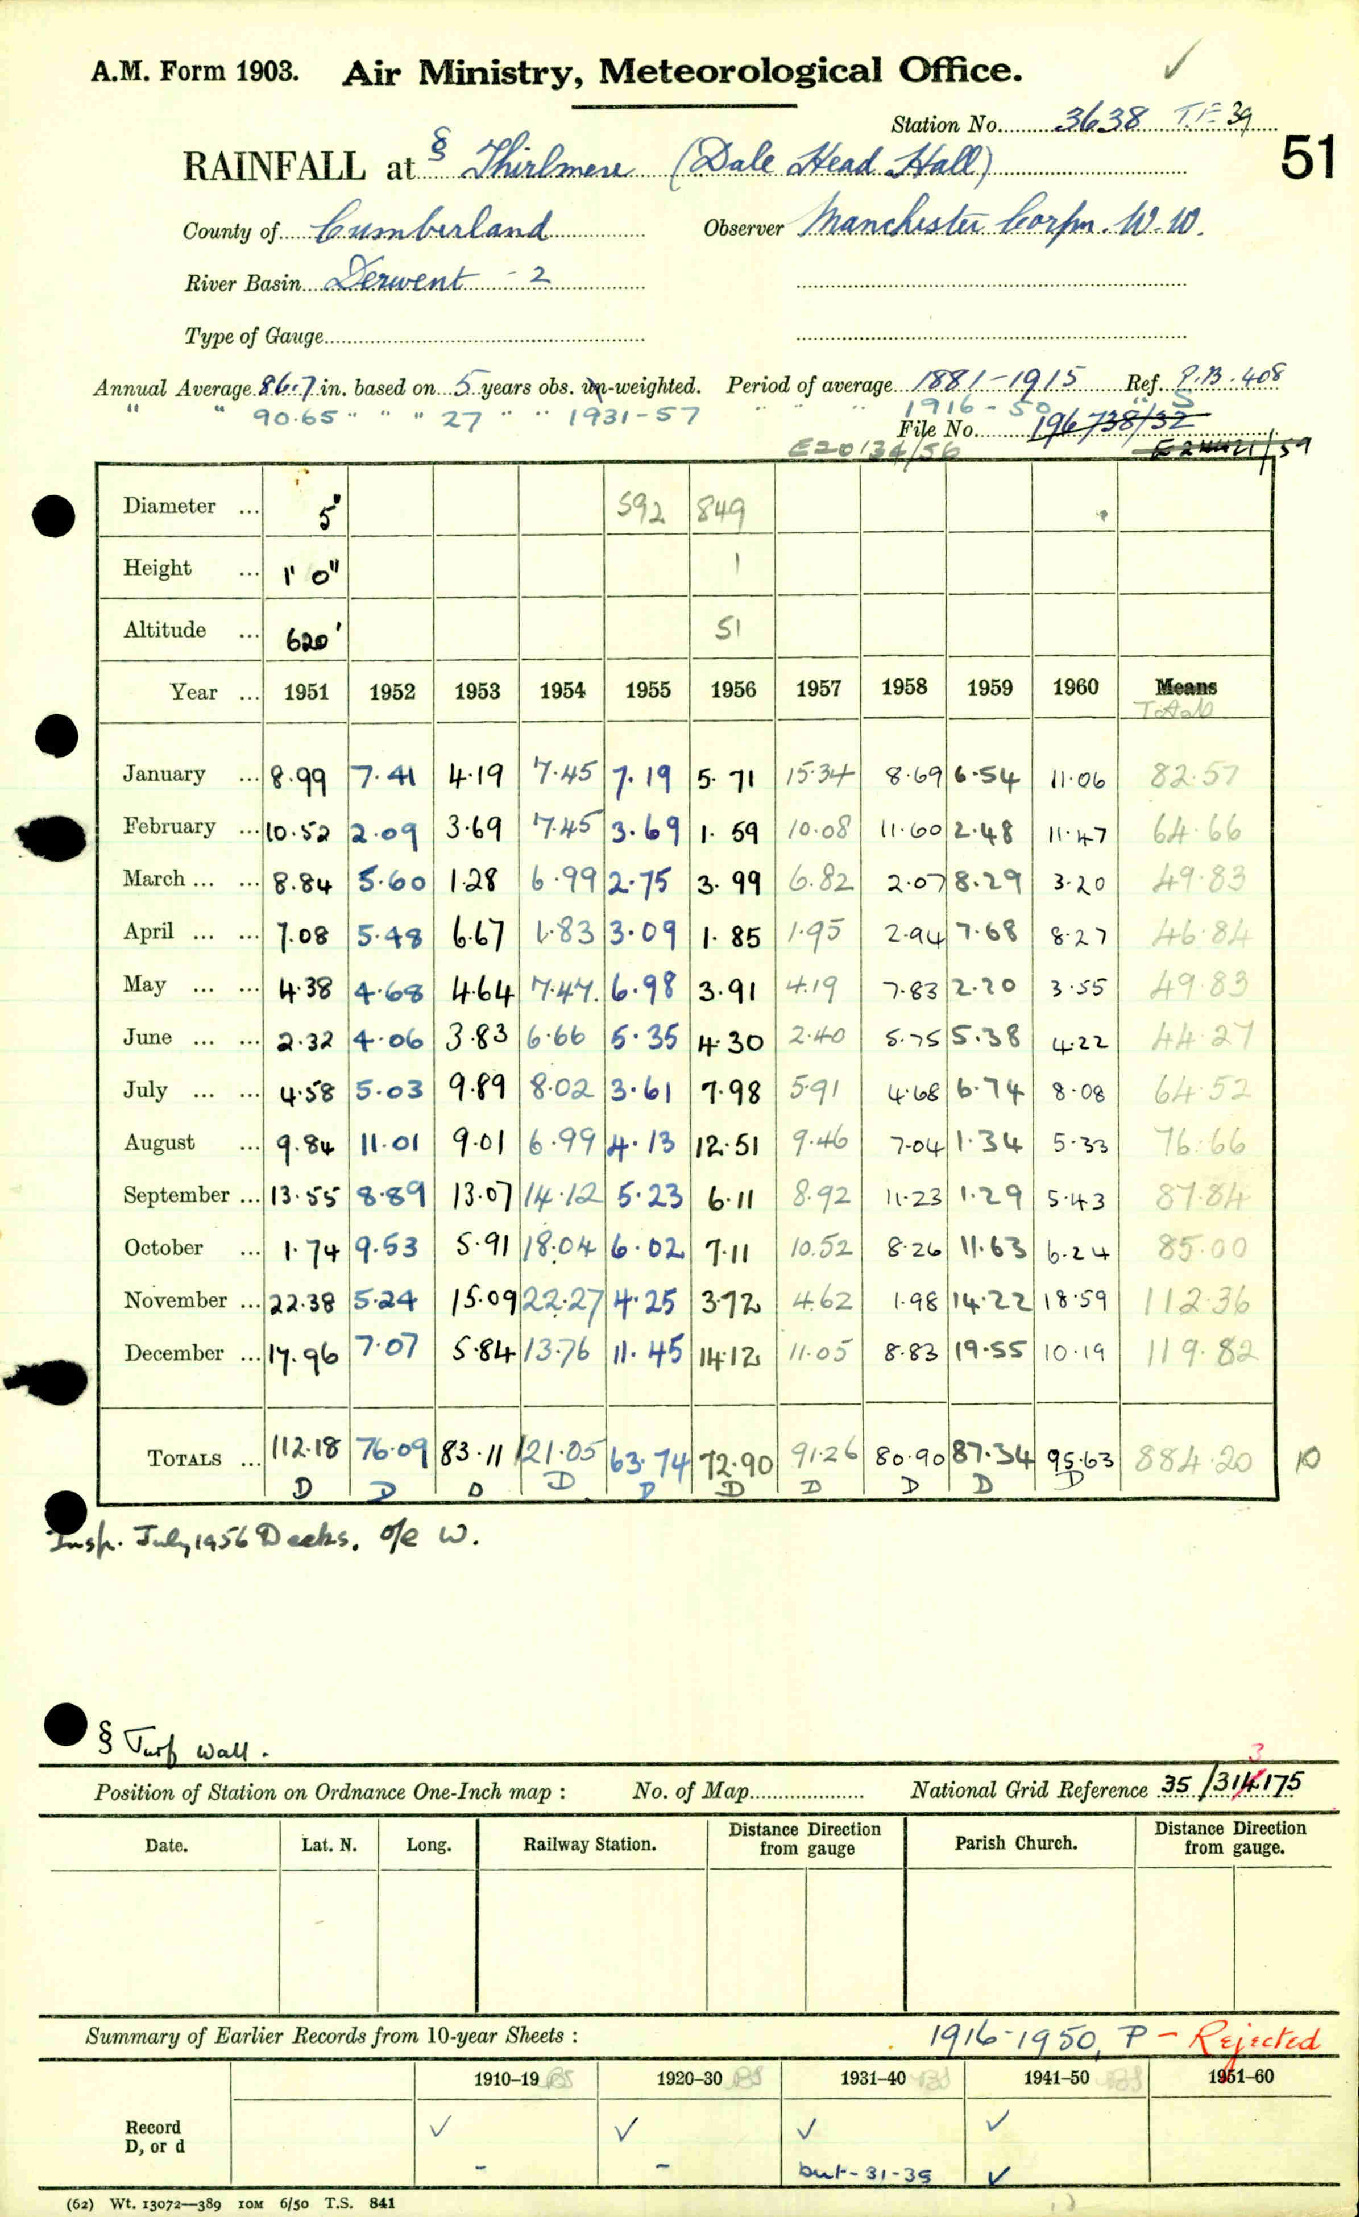 A.M. Form 1903. Air Ministry, Meteorological Office. ✓
Station No. 3638 T.F 39
RAINFALL at § Thirlmere (Dale Head Hall) 51
County of Cumberland Observer Manchester Corpn. W.W.
River Basin Derwent - 2
Type of Gauge
Annual Average 86.7 in. based on 5 years obs. un-weighted. Period of average 1881-1915 Ref. P.B. 408
" " 90.65 " " " 27 " " 1931-57 " " " 1916-50 " S
File No. 196738/32
E20134/56
Diameter ... 5" 592 849
Height ... 1' 0" 1
Altitude ... 620' 51
Year ... 1951 1952 1953 1954 1955 1956 1957 1958 1959 1960 Means
Total
January ... 8.99 7.41 4.19 7.45 7.19 5.71 15.34 8.69 6.54 11.06 82.57
February ... 10.52 2.09 3.69 7.45 3.69 1.59 10.08 11.60 2.48 11.47 64.66
March ... ... 8.84 5.60 1.28 6.99 2.75 3.99 6.82 2.07 8.29 3.20 49.83
April ... ... 7.08 5.48 6.67 1.83 3.09 1.85 1.95 2.94 7.68 8.27 46.84
May ... ... 4.38 4.68 4.64 7.47 6.98 3.91 4.19 7.83 2.20 3.55 49.83
June ... ... 2.32 4.06 3.83 6.66 5.35 4.30 2.40 5.75 5.38 4.22 44.27
July ... ... 4.58 5.03 9.89 8.02 3.61 7.98 5.91 4.68 6.74 8.08 64.52
August ... 9.84 11.01 9.01 6.99 4.13 12.51 9.46 7.04 1.34 5.33 76.66
September ... 13.55 8.89 13.07 14.12 5.23 6.11 8.92 11.23 1.29 5.43 87.84
October ... 1.74 9.53 5.91 18.04 6.02 7.11 10.52 8.26 11.63 6.24 85.00
November ... 22.38 5.24 15.09 22.27 4.25 3.72 4.62 1.98 14.22 18.59 112.36
December ... 17.96 7.07 5.84 13.76 11.45 14.12 11.05 8.83 19.55 10.19 119.82
TOTALS ... 112.18 76.09 83.11 121.05 63.74 72.90 91.26 80.90 87.34 95.63 884.20 10
D D D D D D D D D D
Insp. July 1956 Deeks. o/e W.
§ Turf wall.
3
Position of Station on Ordnance One-Inch map : No. of Map National Grid Reference 35/314175
Date. Lat. N. Long. Railway Station. Distance Direction from gauge Parish Church. Distance Direction from gauge.
Summary of Earlier Records from 10-year Sheets : 1916-1950, P - Rejected
1910-19 BS 1920-30 BS 1931-40 BS 1941-50 BS 1951-60
Record ✓ ✓ ✓ ✓
D, or d - - but - 31-35 ✓
(62) Wt. 13072—389 10M 6/50 T.S. 841